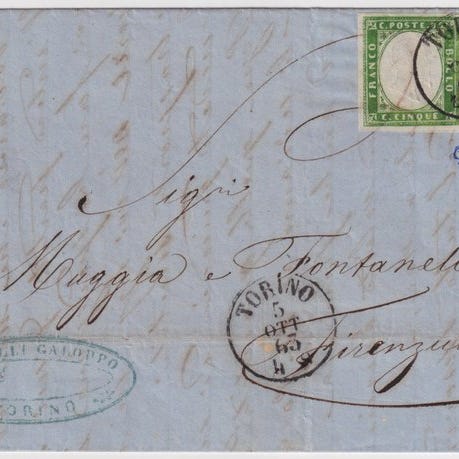 C. POSTE
FRANCO
BOLLO
C. CINQUE
TO
Sigri
Maggia e Fontanel
Firenzu
TORINO
5
OTT
63
4 S
LLI GALOPPO
TORINO